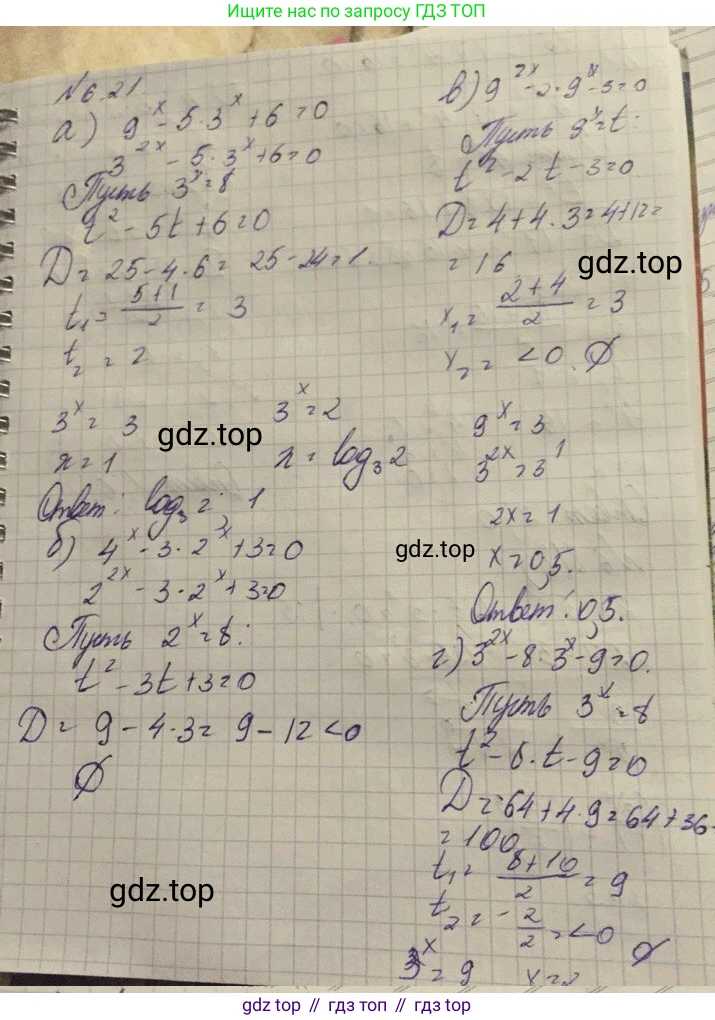 Ищите нас по запросу ГДЗ ТОП
№ 6.21.
а) 9^x - 5 · 3^x + 6 = 0
3^2x - 5 · 3^x + 6 = 0
Пусть 3^x = t
t^2 - 5t + 6 = 0
D = 25 - 4 · 6 = 25 - 24 = 1.
t₁ = (5+1)/2 = 3
t₂ = 2
3^x = 3    3^x = 2
x = 1    x = log₃ 2
Ответ: log₃ 2; 1
б) 4^x - 3 · 2^x + 3 = 0
2^2x - 3 · 2^x + 3 = 0
Пусть 2^x = t:
t^2 - 3t + 3 = 0
D = 9 - 4 · 3 = 9 - 12 < 0
∅
в) 9^2x - 2 · 9^x - 3 = 0
Пусть 9^x = t:
t^2 - 2t - 3 = 0
D = 4 + 4 · 3 = 4 + 12 =
= 16
x₁ = (2+4)/2 = 3
x₂ = < 0 ∅
9^x = 3
3^2x = 3^1
2x = 1
x = 0,5.
Ответ: 0,5.
г) 3^2x - 8 · 3^x - 9 = 0.
Пусть 3^x = t
t^2 - 8 · t - 9 = 0
D = 64 + 4 · 9 = 64 + 36 =
= 100
t₁ = (8+10)/2 = 9
t₂ = -2/2 = < 0 ∅
3^x = 9    x = 2
gdz.top
gdz.top
gdz.top
gdz.top
gdz.top // гдз топ // гдз.топ // gdz top